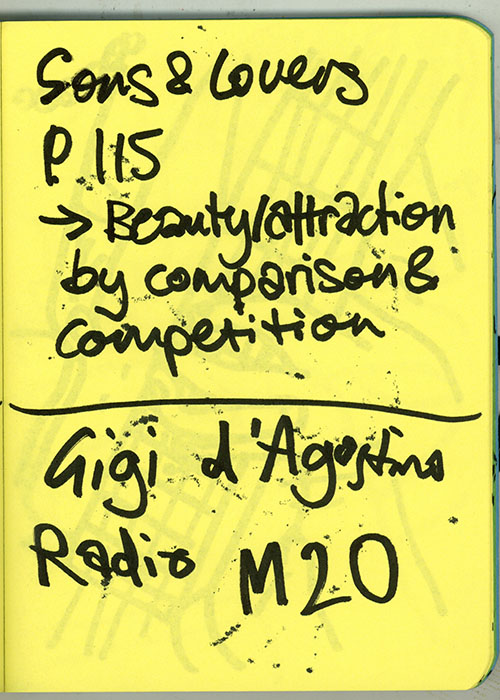 Sons & Lovers
P 115
→ Beauty/attraction
by comparison &
competition
Gigi d'Agostino
Radio M2O